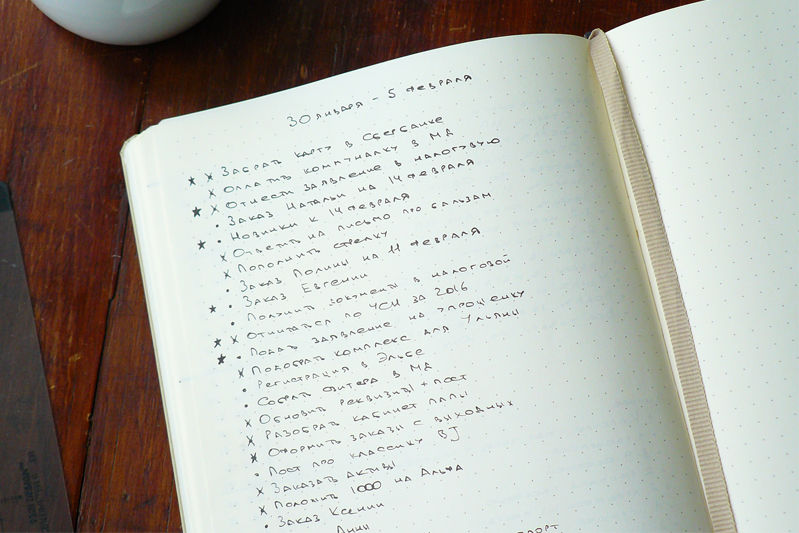 30 января - 5 февраля
★ x Забрать карту в Сбербанке
x Оплатить коммуналку в МД
★ x Отнести заявление в налоговую
• Заказ Натальи на 14 февраля
★ • Новинки к 14 февраля
x Ответить на письмо про бальзам
x Пополнить стрелку
• Заказ Полины на 11 февраля
• Заказ Евгении
★ • Получить документы в налоговой
x Отчитаться по УСН за 2016
★ x Подать заявление на упрощенку
★ x Подобрать комплекс для Ульяны
• Регистрация в Эльбе
• Собрать свитера в МД
x Обновить реквизиты + пост
x Разобрать кабинет папы
x Оформить заказы с выходных
• Пост про классику BJ
x Заказать активы
x Положить 1000 на Альфа
• Заказ Ксении